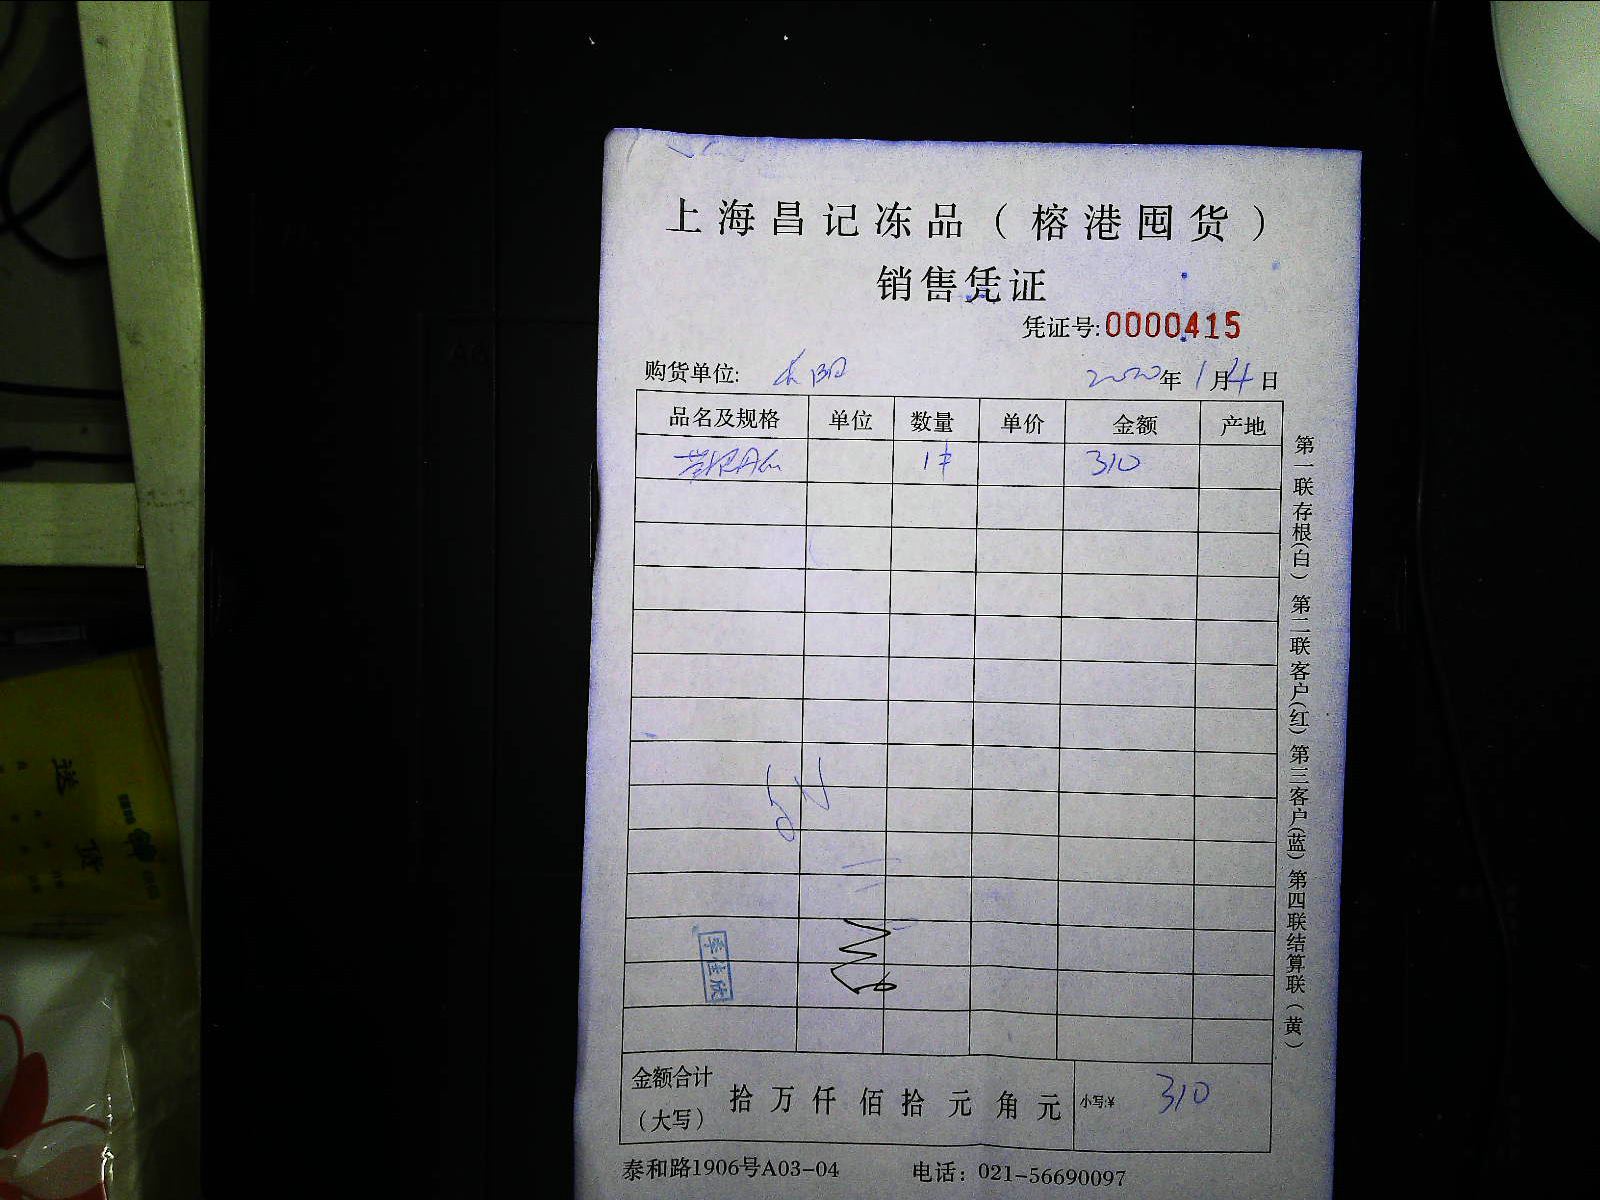 上海昌记冻品（榕港囤货）
销售凭证
凭证号:0000415
购货单位:
2020年1月4日
品名及规格 单位 数量 单价 金额 产地
1件 310
第一联存根(白) 第二联客户(红) 第三客户(蓝) 第四联结算联（黄）
季佳欣
金额合计（大写） 拾万仟佰拾元角元 小写:¥ 310
泰和路1906号A03-04 电话：021-56690097
送
货